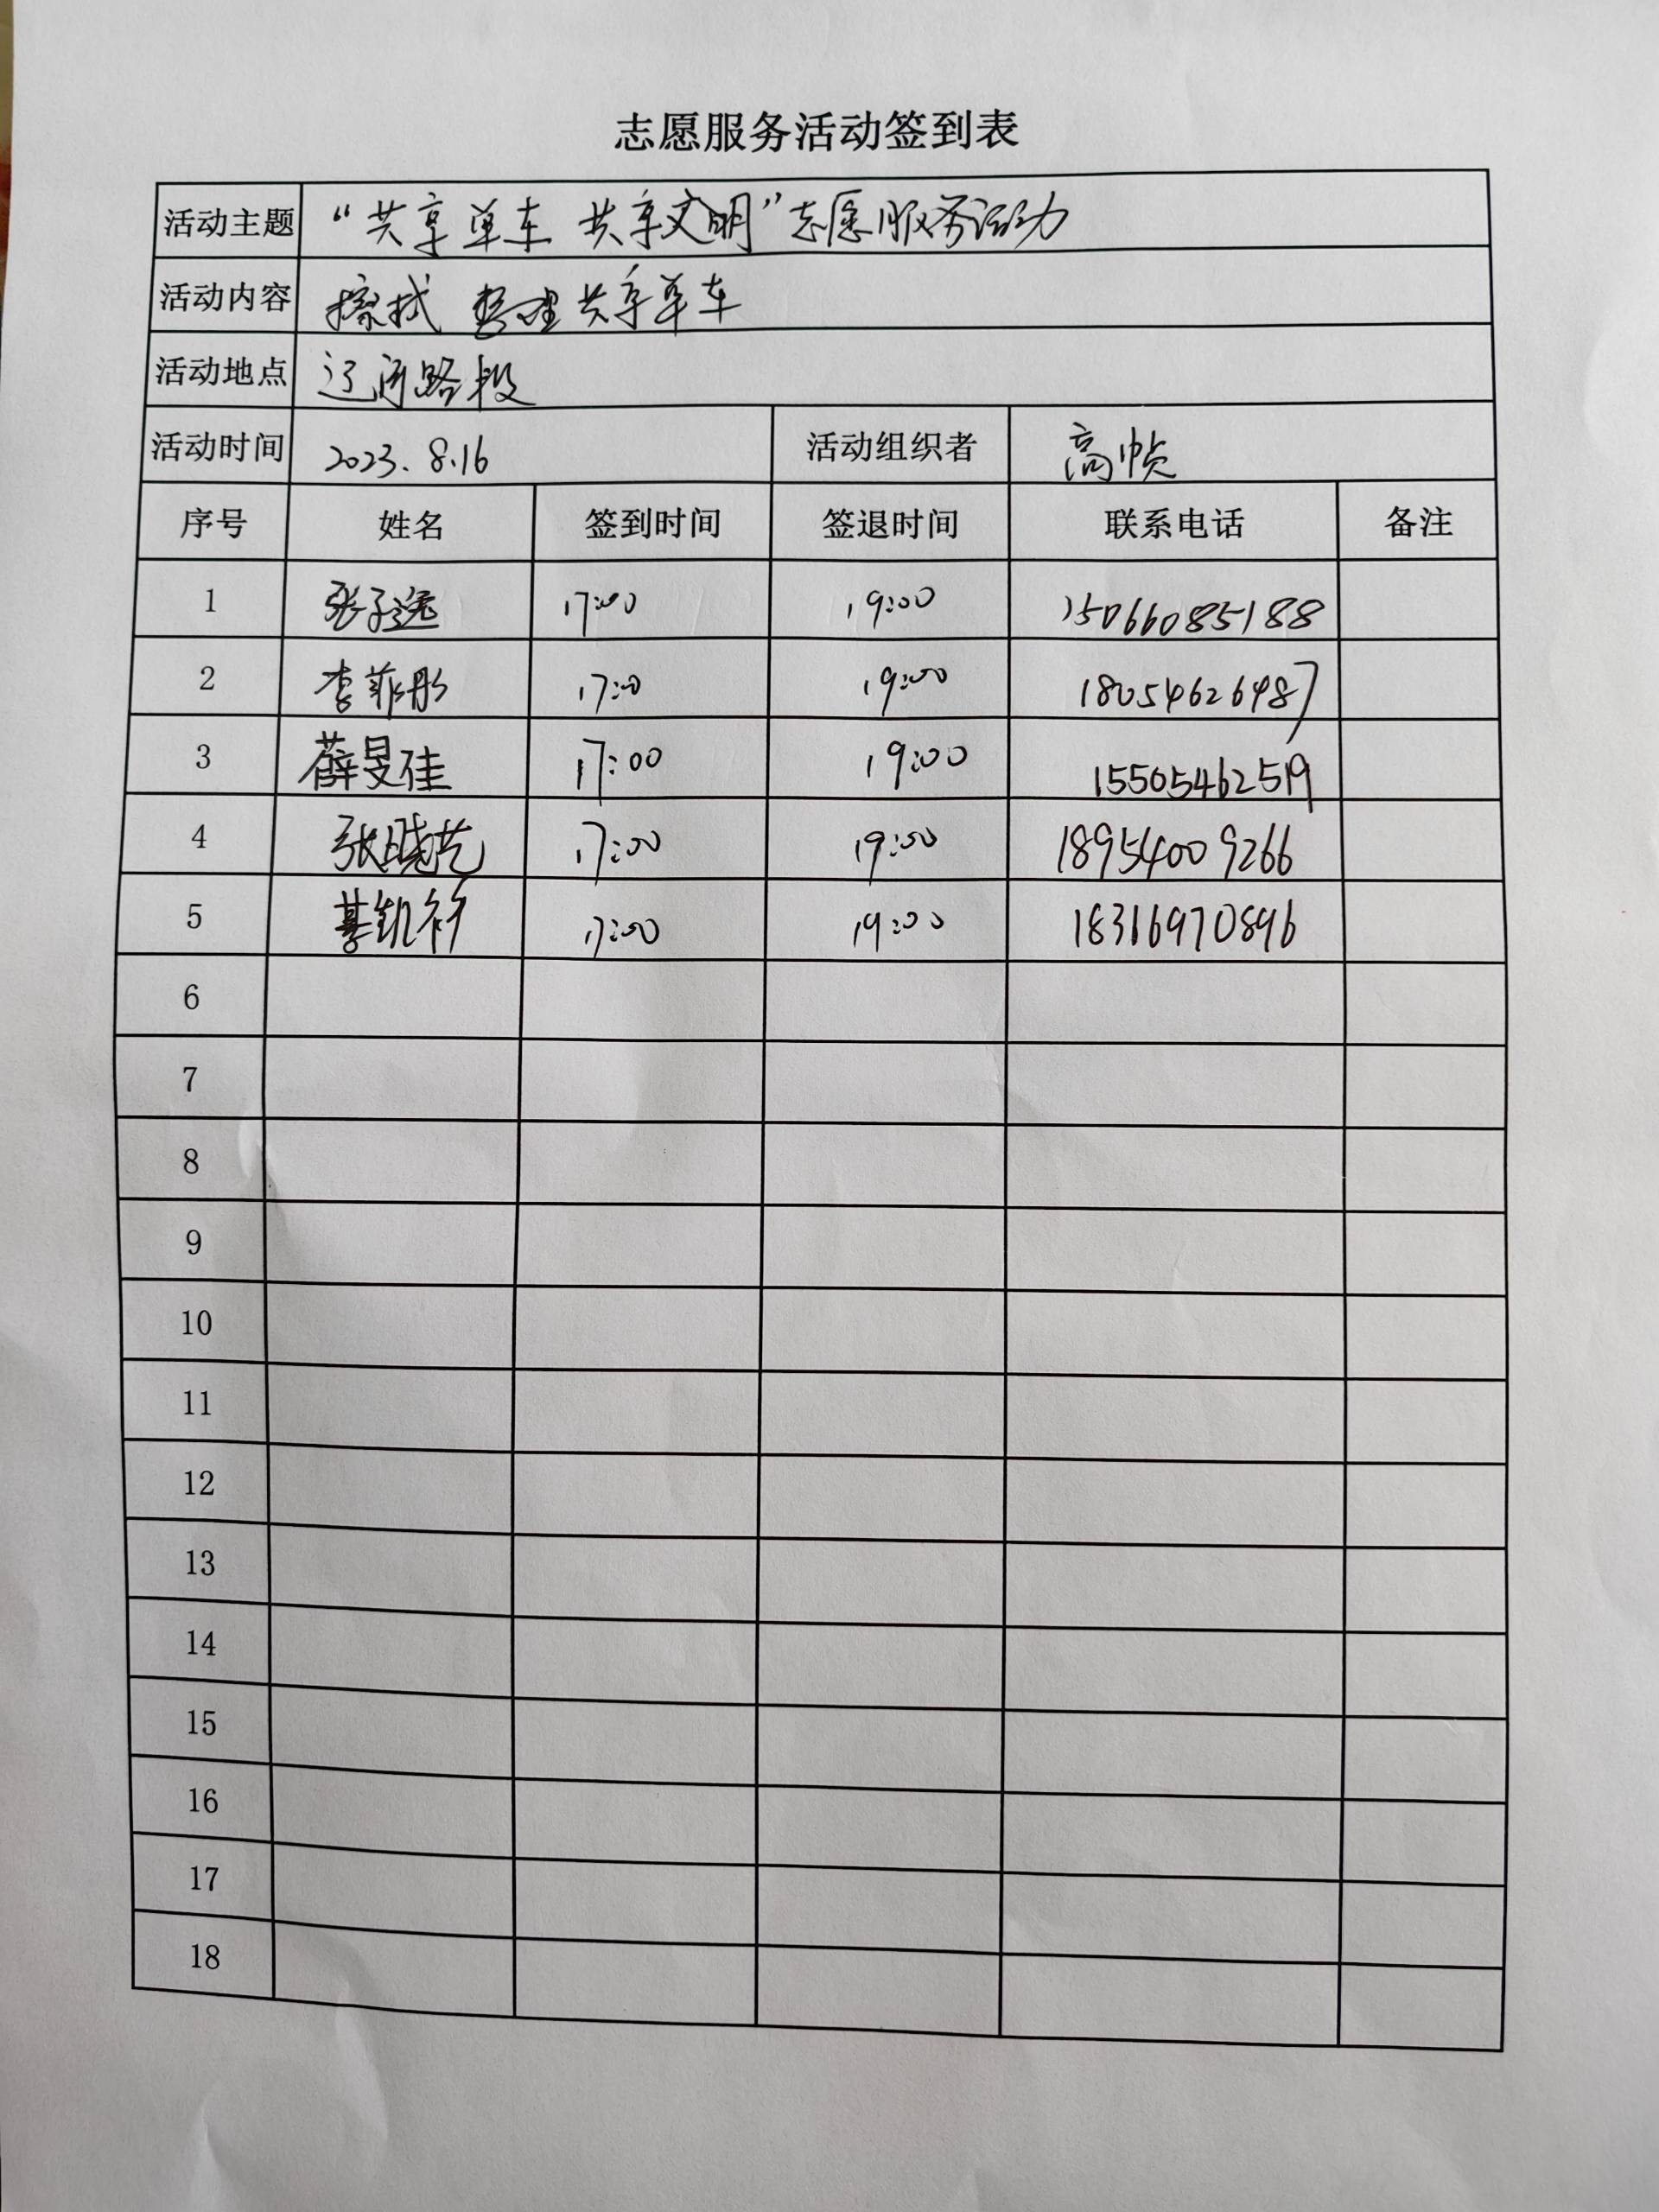 志愿服务活动签到表
活动主题 “共享单车 共享文明”志愿服务活动
活动内容 擦拭 整理共享单车
活动地点 辽河路段
活动时间 2023.8.16 活动组织者 高帧
序号 姓名 签到时间 签退时间 联系电话 备注
1 张子逸 17:00 19:00 15066085188
2 李菲彤 17:00 19:00 18054626487
3 薛旻佳 17:00 19:00 15505462519
4 张晓艺 17:00 19:00 18954009266
5 綦凯祥 17:00 19:00 18316970896
6
7
8
9
10
11
12
13
14
15
16
17
18